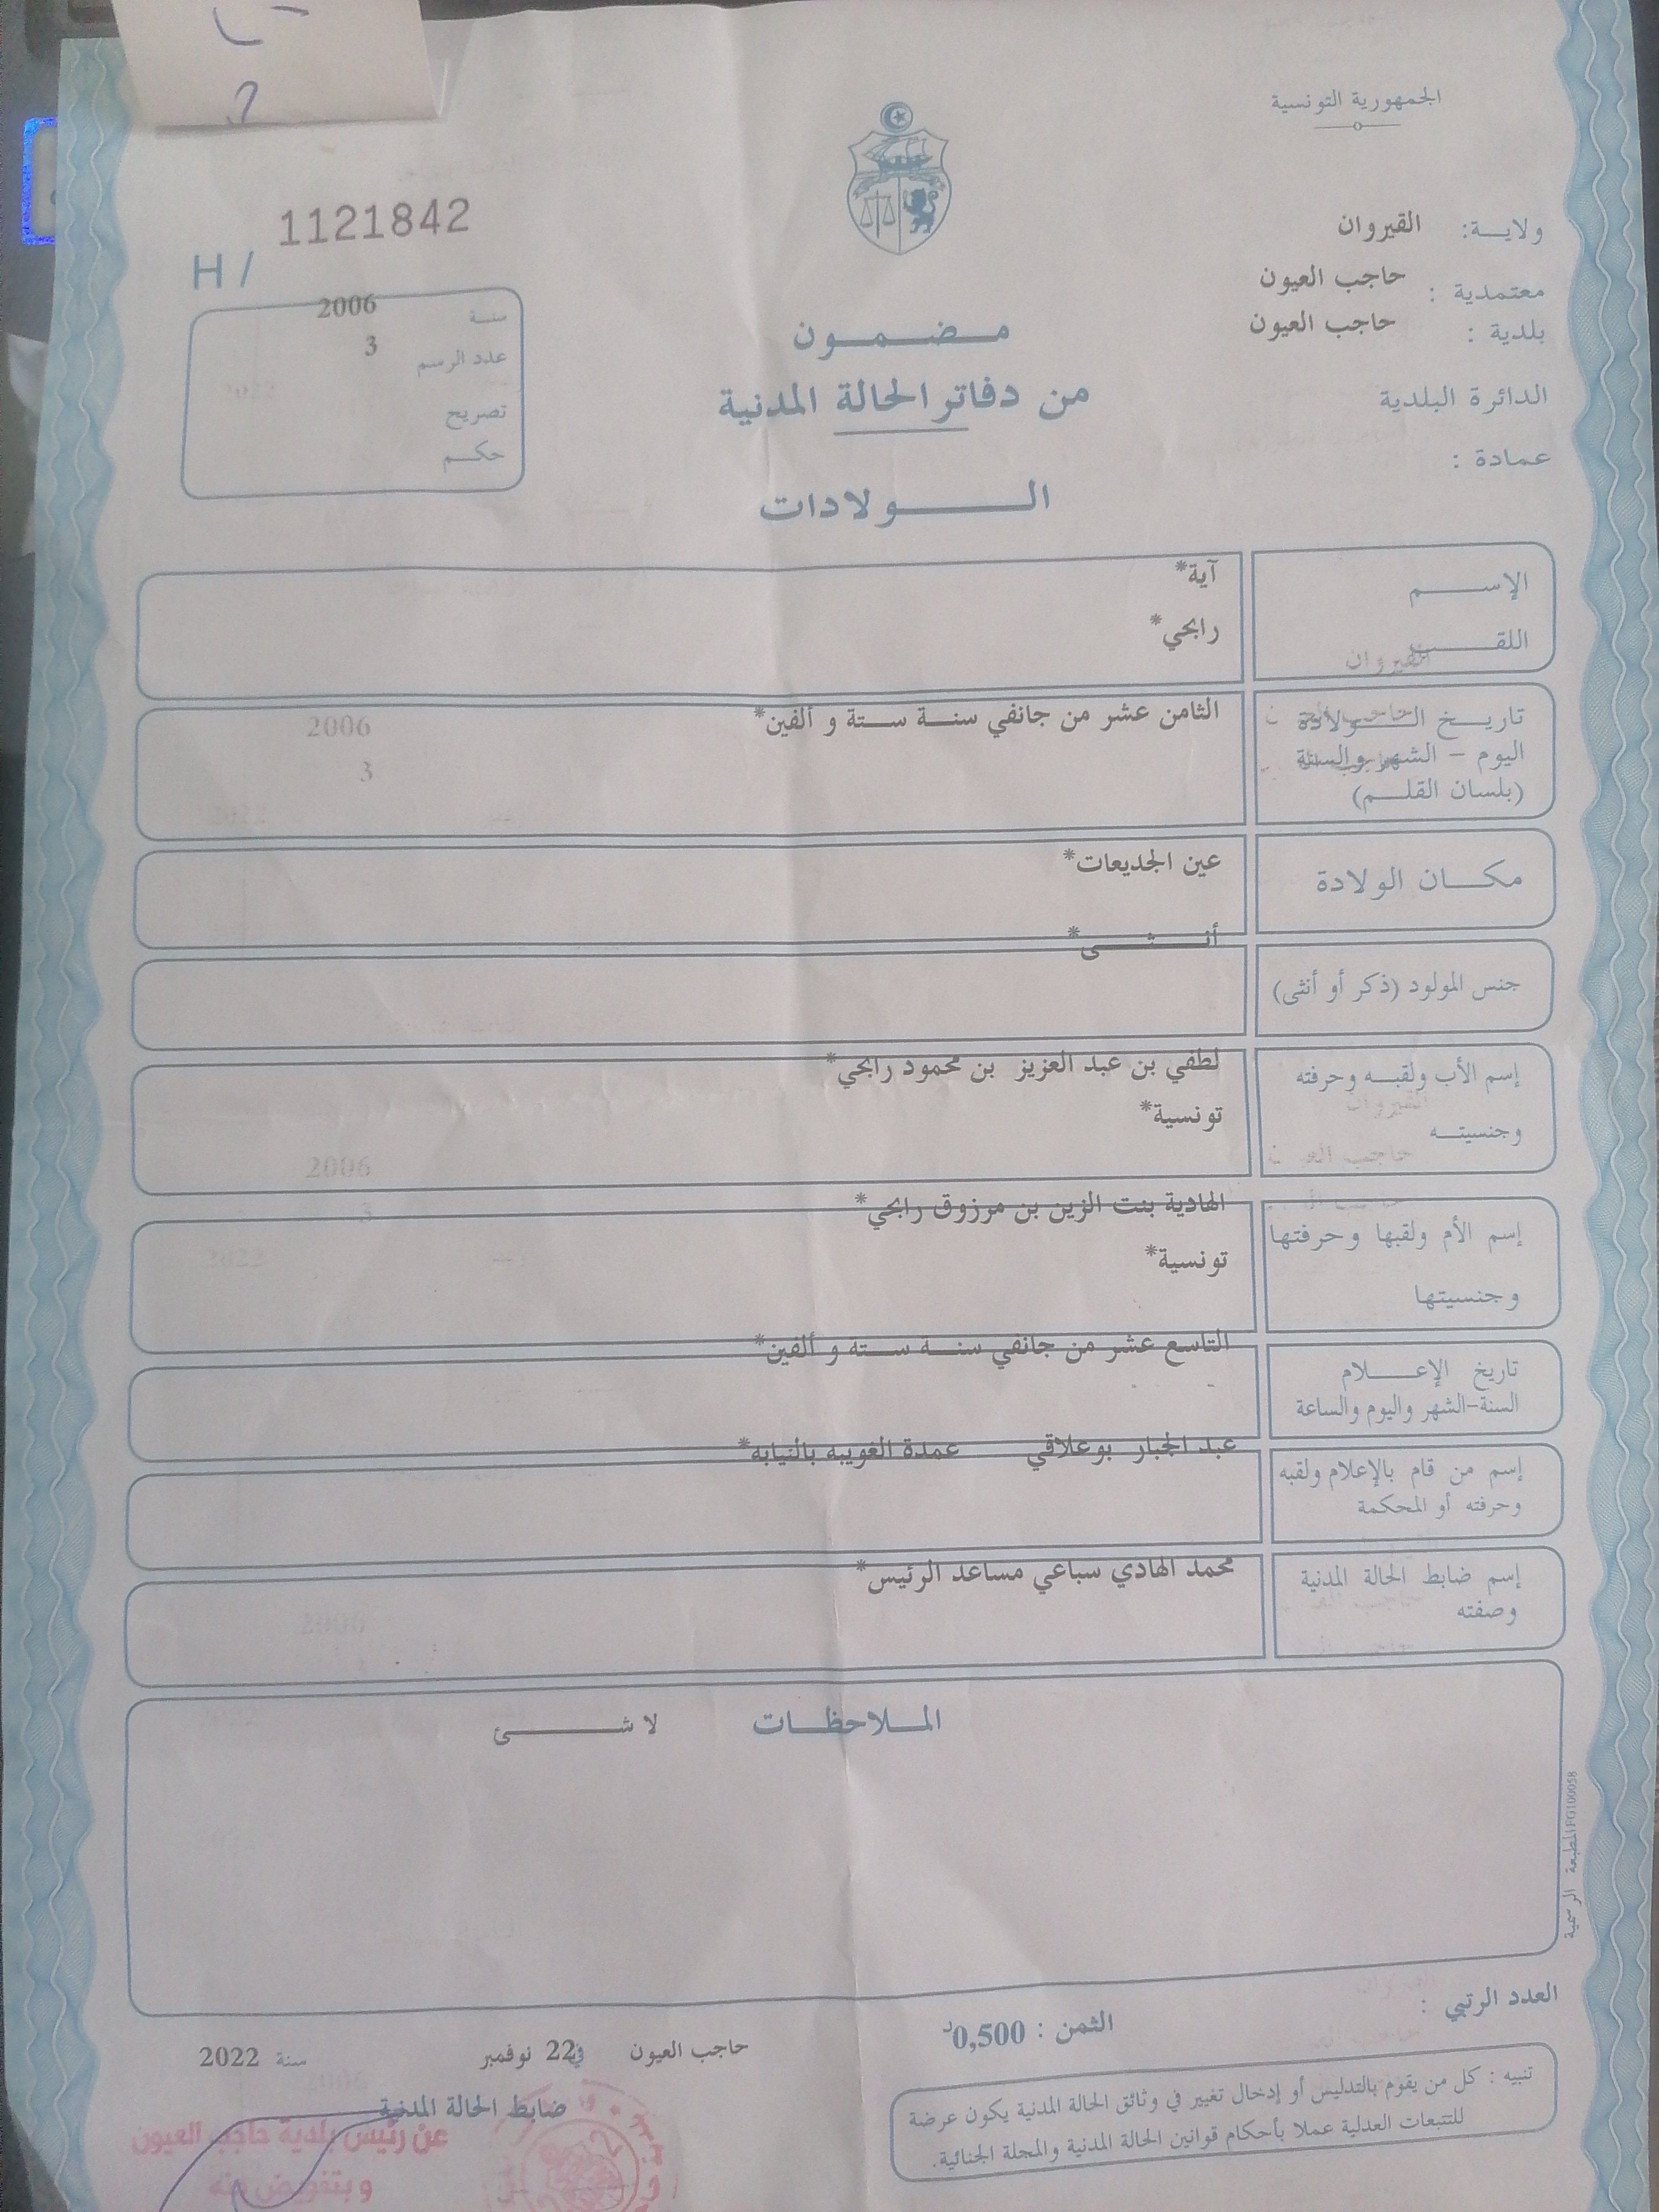 الجمهورية التونسية
ولايـــة: القيروان
معتمدية : حاجب العيون
بلدية : حاجب العيون
الدائرة البلدية
عمادة :
H / 1121842
سنـة 2006
عدد الرسم 3
تصريح
حكـــم
مـــضـــمـــون
من دفاتر الحالة المدنية
الــــــولادات
الإســـــم آية*
اللقـــــب رابحي*
تاريـــخ الــــولادة الثامن عشر من جانفي سنـــة ستـــة و ألفين*
اليوم – الشهر والسنة
(بلسان القلـــم)
مكـــــان الولادة عين الجديعات*
جنس المولود (ذكر أو أنثى) أنـــــثـــــى*
إسم الأب ولقبـــه وحرفته لطفي بن عبد العزيز بن محمود رابحي*
وجنسيتـــه تونسية*
إسم الأم ولقبها وحرفتها الهادية بنت الزين بن مرزوق رابحي*
وجنسيتها تونسية*
تاريخ الإعــــــلام التاسع عشر من جانفي سنـــة ستـــة و ألفين*
السنة-الشهر واليوم والساعة
إسم من قام بالإعلام ولقبه عبد الجبار بوعلاقي عمدة الغويبه بالنيابه*
وحرفته أو المحكمة
إسم ضابط الحالة المدنية محمد الهادي سباعي مساعد الرئيس*
وصفته
المـــلاحظـــات لا شـــــــئ
المطبعة الرسمية FG100058
العدد الرتبي :
الثمن : 0,500د
حاجب العيون في 22 نوفمبر سنة 2022
ضابط الحالة المدنية
عن رئيس بلدية حاجب العيون
وبتفويض منه
تنبيه : كل من يقوم بالتدليس أو إدخال تغيير في وثائق الحالة المدنية يكون عرضة
للتتبعات العدلية عملا بأحكام قوانين الحالة المدنية والمجلة الجنائية.